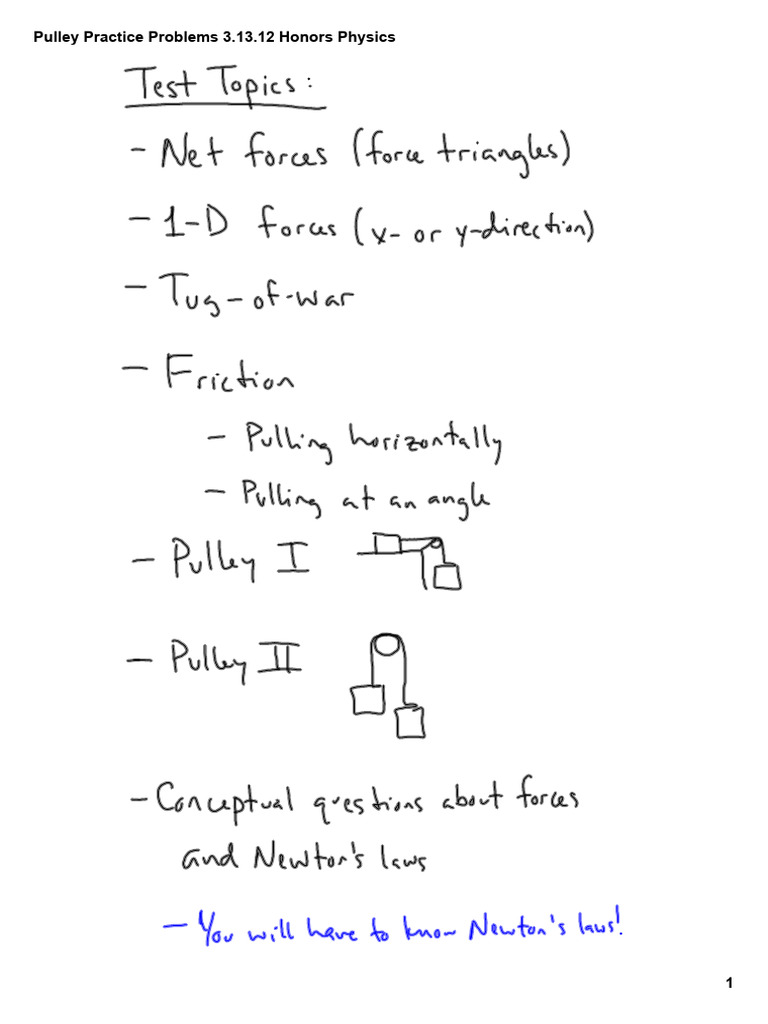 Pulley Practice Problems 3.13.12 Honors Physics
Test Topics:
- Net forces (force triangles)
- 1-D forces (x- or y-direction)
- Tug-of-war
- Friction
- Pulling horizontally
- Pulling at an angle
- Pulley I
- Pulley II
- Conceptual questions about forces
and Newton's laws
- You will have to know Newton's laws!
1